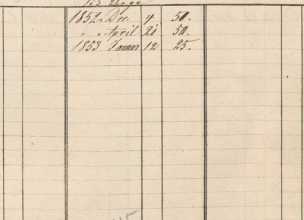 1852 Dec 4 50.
" " April 21 50.
1853 Januar 12 25.